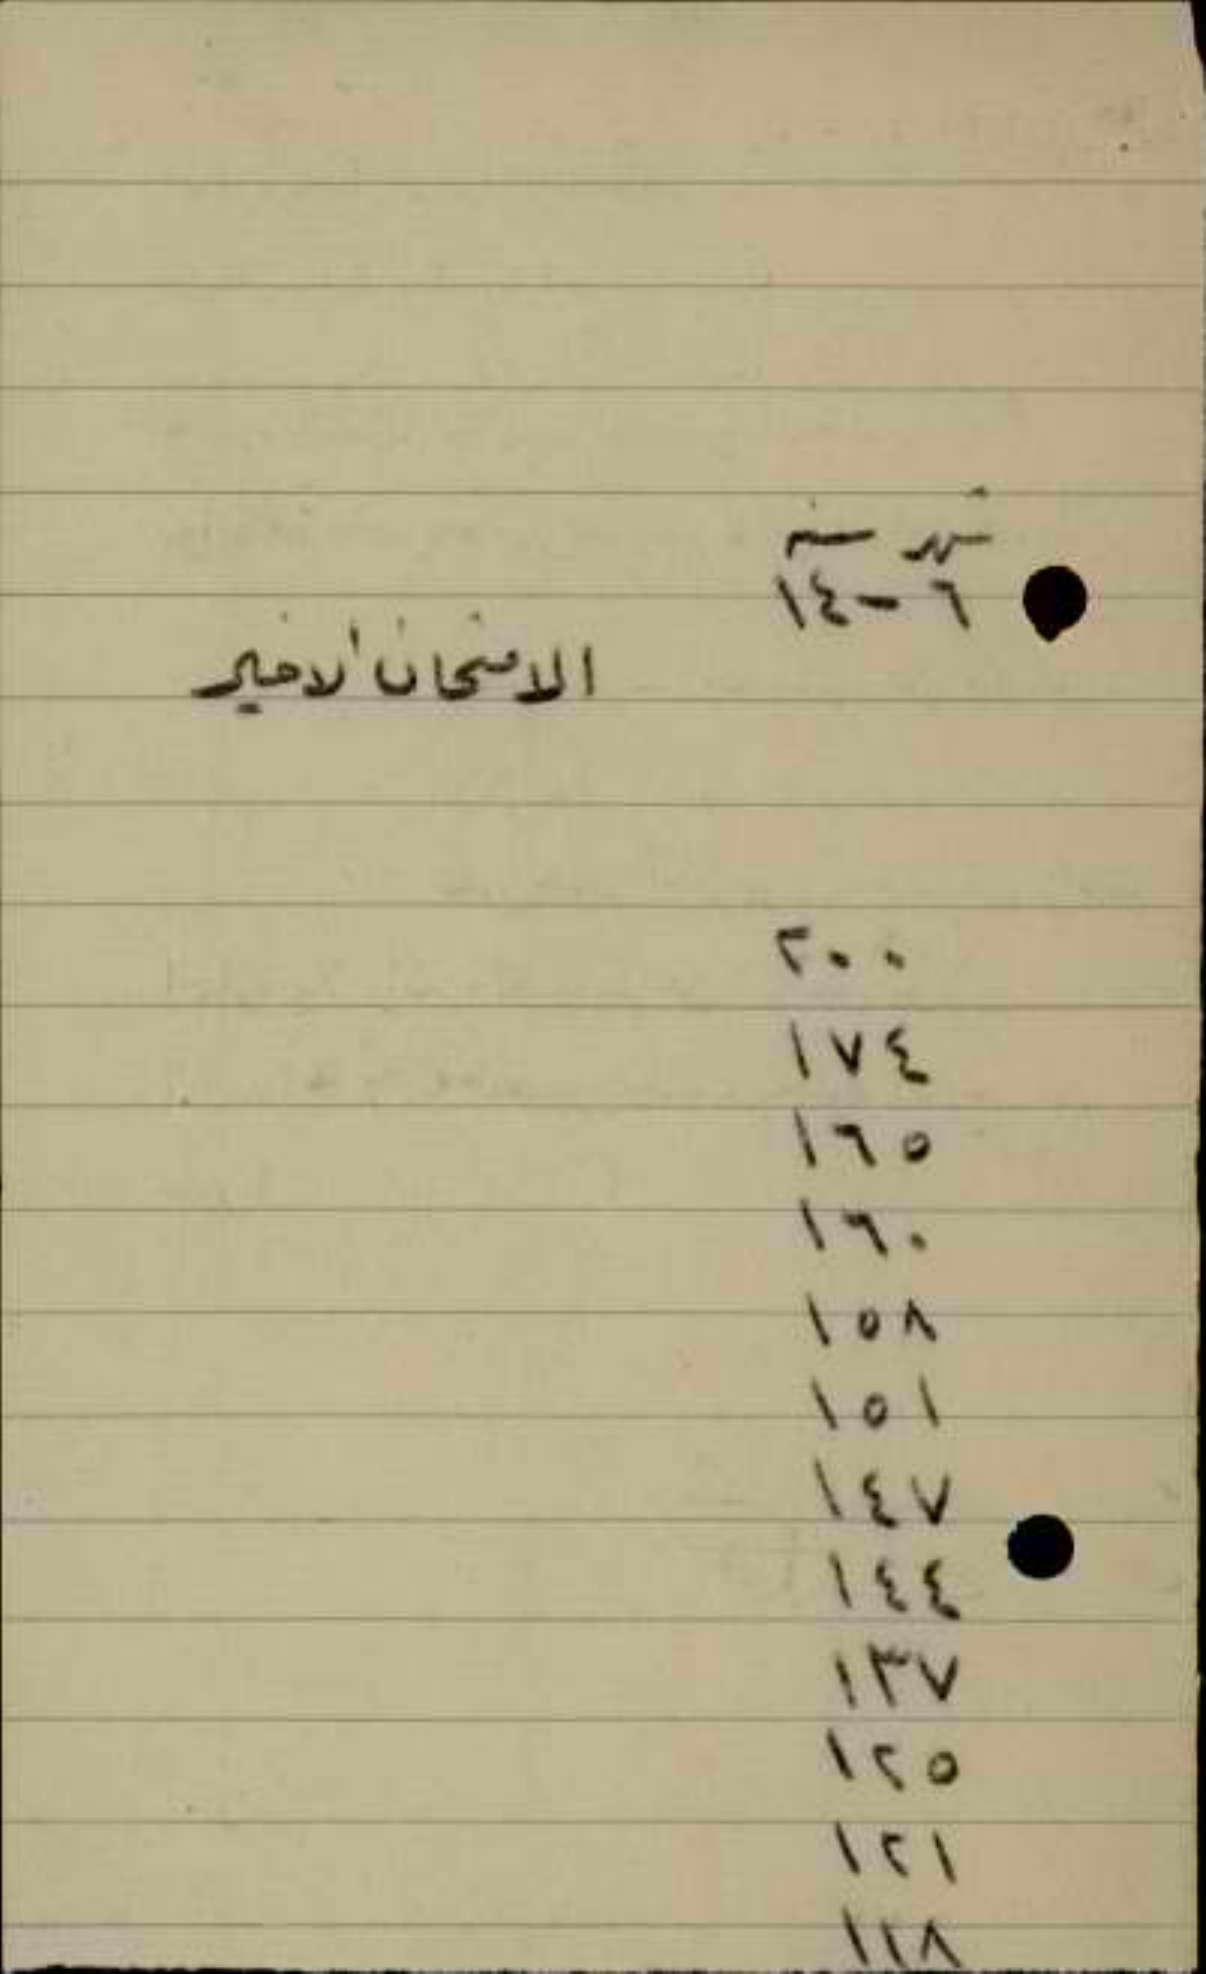 شهر سنة
٦ - ١٤
الامتحان الاخير
٢٠٠
١٧٤
١٦٥
١٦٠
١٥٨
١٥١
١٤٧
١٤٤
١٣٧
١٢٥
١٢١
١١٨